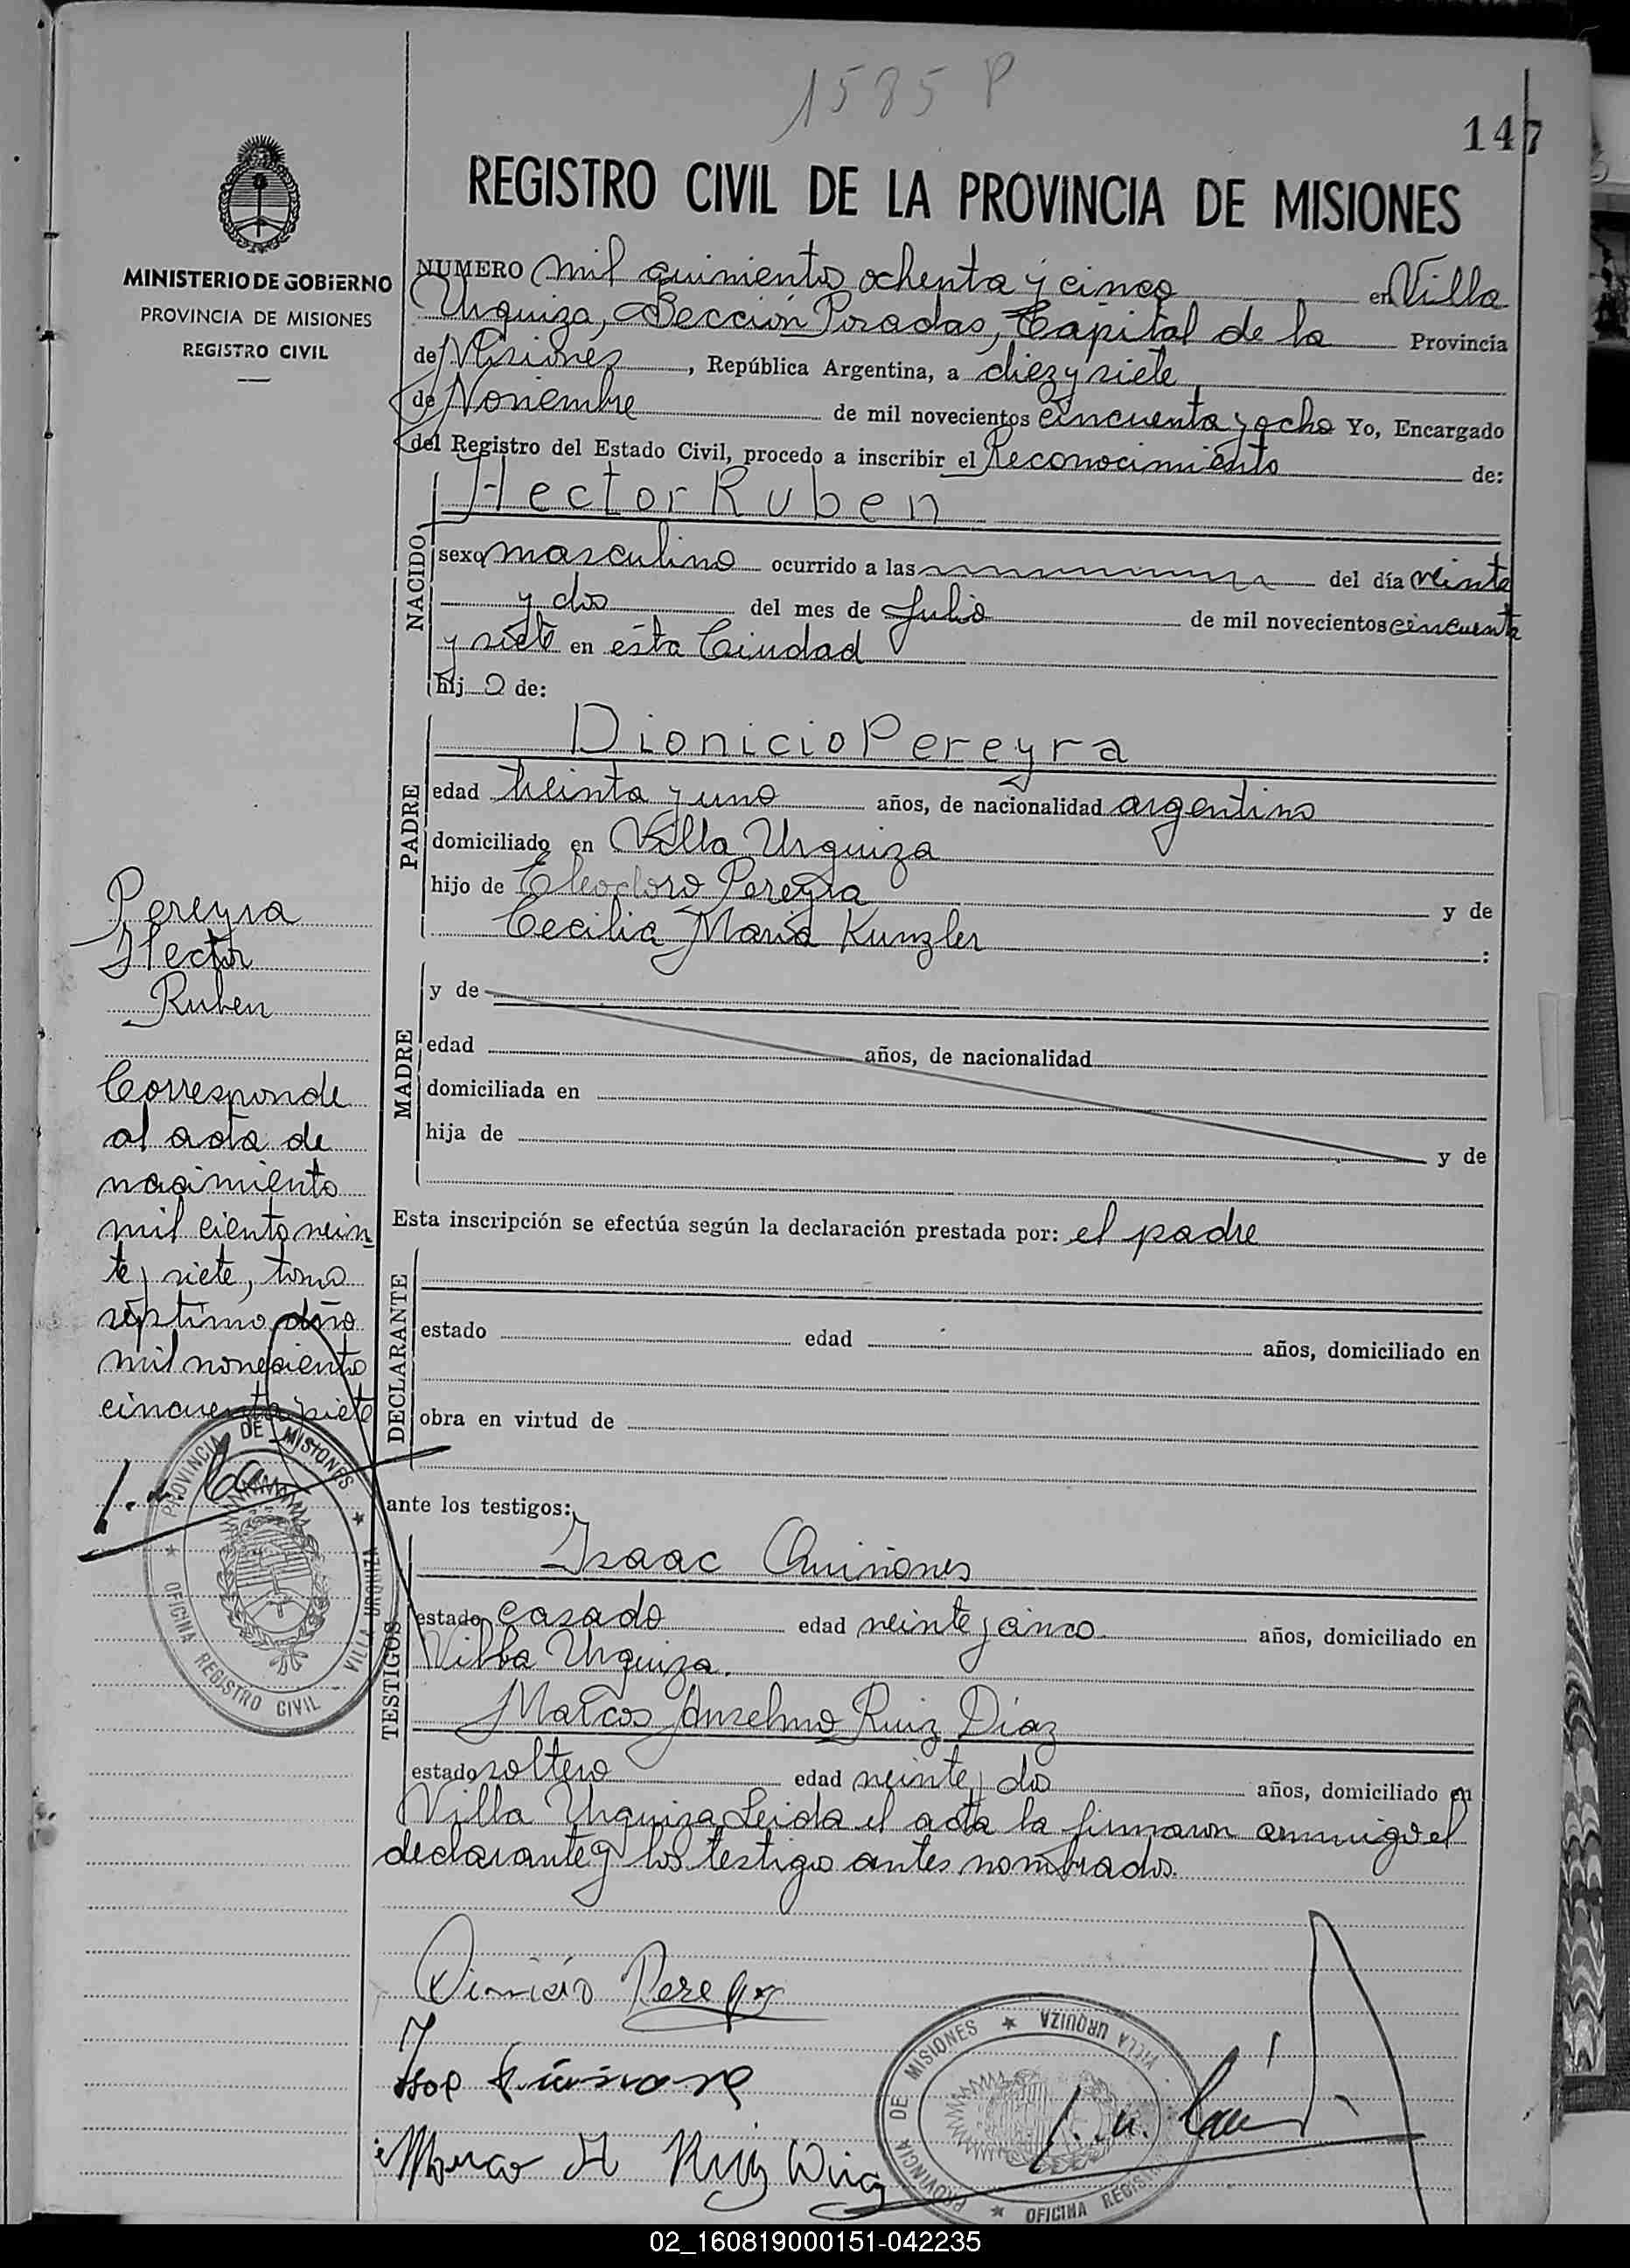 1585 P
147
MINISTERIO DE GOBIERNO
PROVINCIA DE MISIONES
REGISTRO CIVIL
REGISTRO CIVIL DE LA PROVINCIA DE MISIONES
NUMERO mil quinientos ochenta y cinco en Villa
Urquiza, Sección Posadas, Capital de la Provincia
de Misiones, República Argentina, a diez y siete
de Noviembre de mil novecientos cincuenta y ocho Yo, Encargado
del Registro del Estado Civil, procedo a inscribir el Reconocimiento de:
NACIDO
Hector Ruben
sexo masculino ocurrido a las del día veinte
y dos del mes de Julio de mil novecientos cincuenta
y siete en ésta Ciudad
hij o de:
PADRE
Dionicio Pereyra
edad treinta y uno años, de nacionalidad argentino
domiciliado en Villa Urquiza
hijo de Eleodoro Pereyra y de
Cecilia María Kunzler :
MADRE
y de
edad años, de nacionalidad
domiciliada en
hija de y de
Esta inscripción se efectúa según la declaración prestada por: el padre
DECLARANTE
estado edad años, domiciliado en
obra en virtud de
ante los testigos:
TESTIGOS
Isaac Quiñones
estado casado edad veinte y cinco años, domiciliado en
Villa Urquiza.
Marcos Anselmo Ruiz Díaz
estado soltero edad veinte y dos años, domiciliado en
Villa Urquiza Leida el acta la firmaron conmigo el
declarante y los testigos antes nombrados.
Pereyra
Hector
Ruben
Corresponde
al acta de
nacimiento
mil ciento vein
te y siete, tomo
séptimo año
mil novecientos
cincuenta y siete
PROVINCIA DE MISIONES
OFICINA REGISTRO CIVIL
VILLA URQUIZA
Dionicio Pereyra
PROVINCIA DE MISIONES
VILLA URQUIZA
OFICINA REGIS
Ruiz
02_160819000151-042235